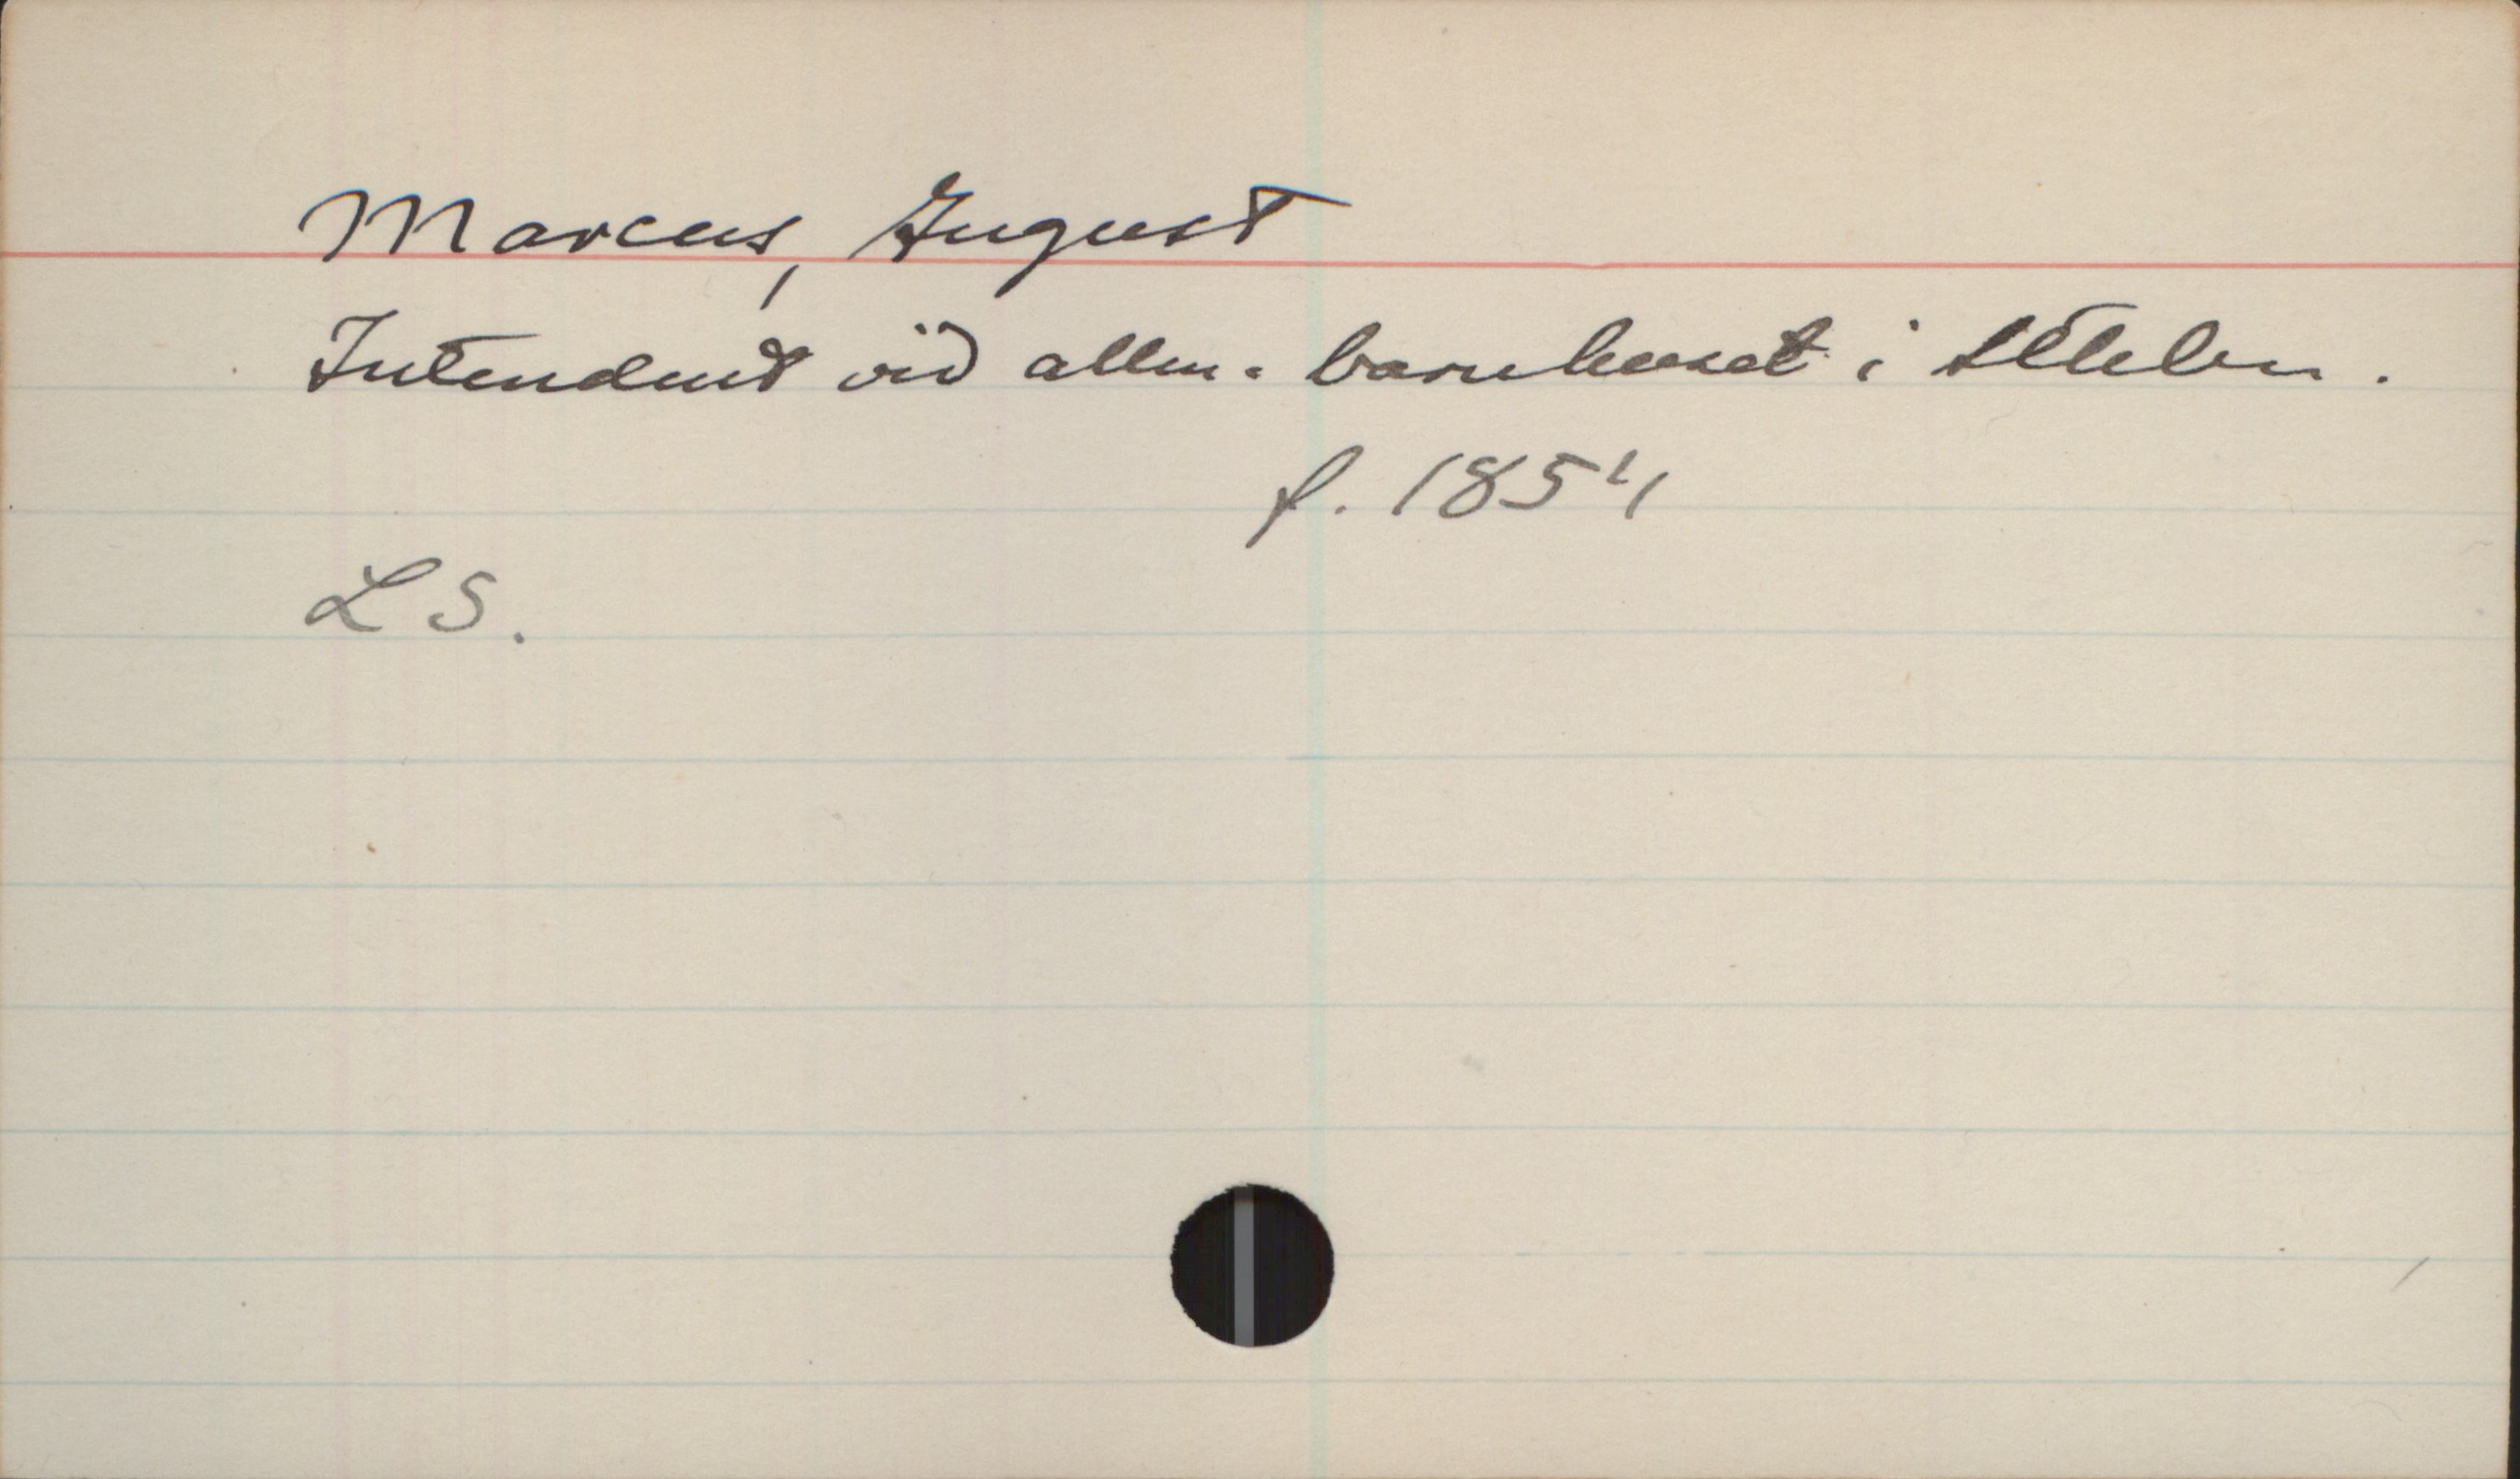 Marcus, August
Intendent vid allm. barnhuset i Sthlm.
f. 1854
LS.